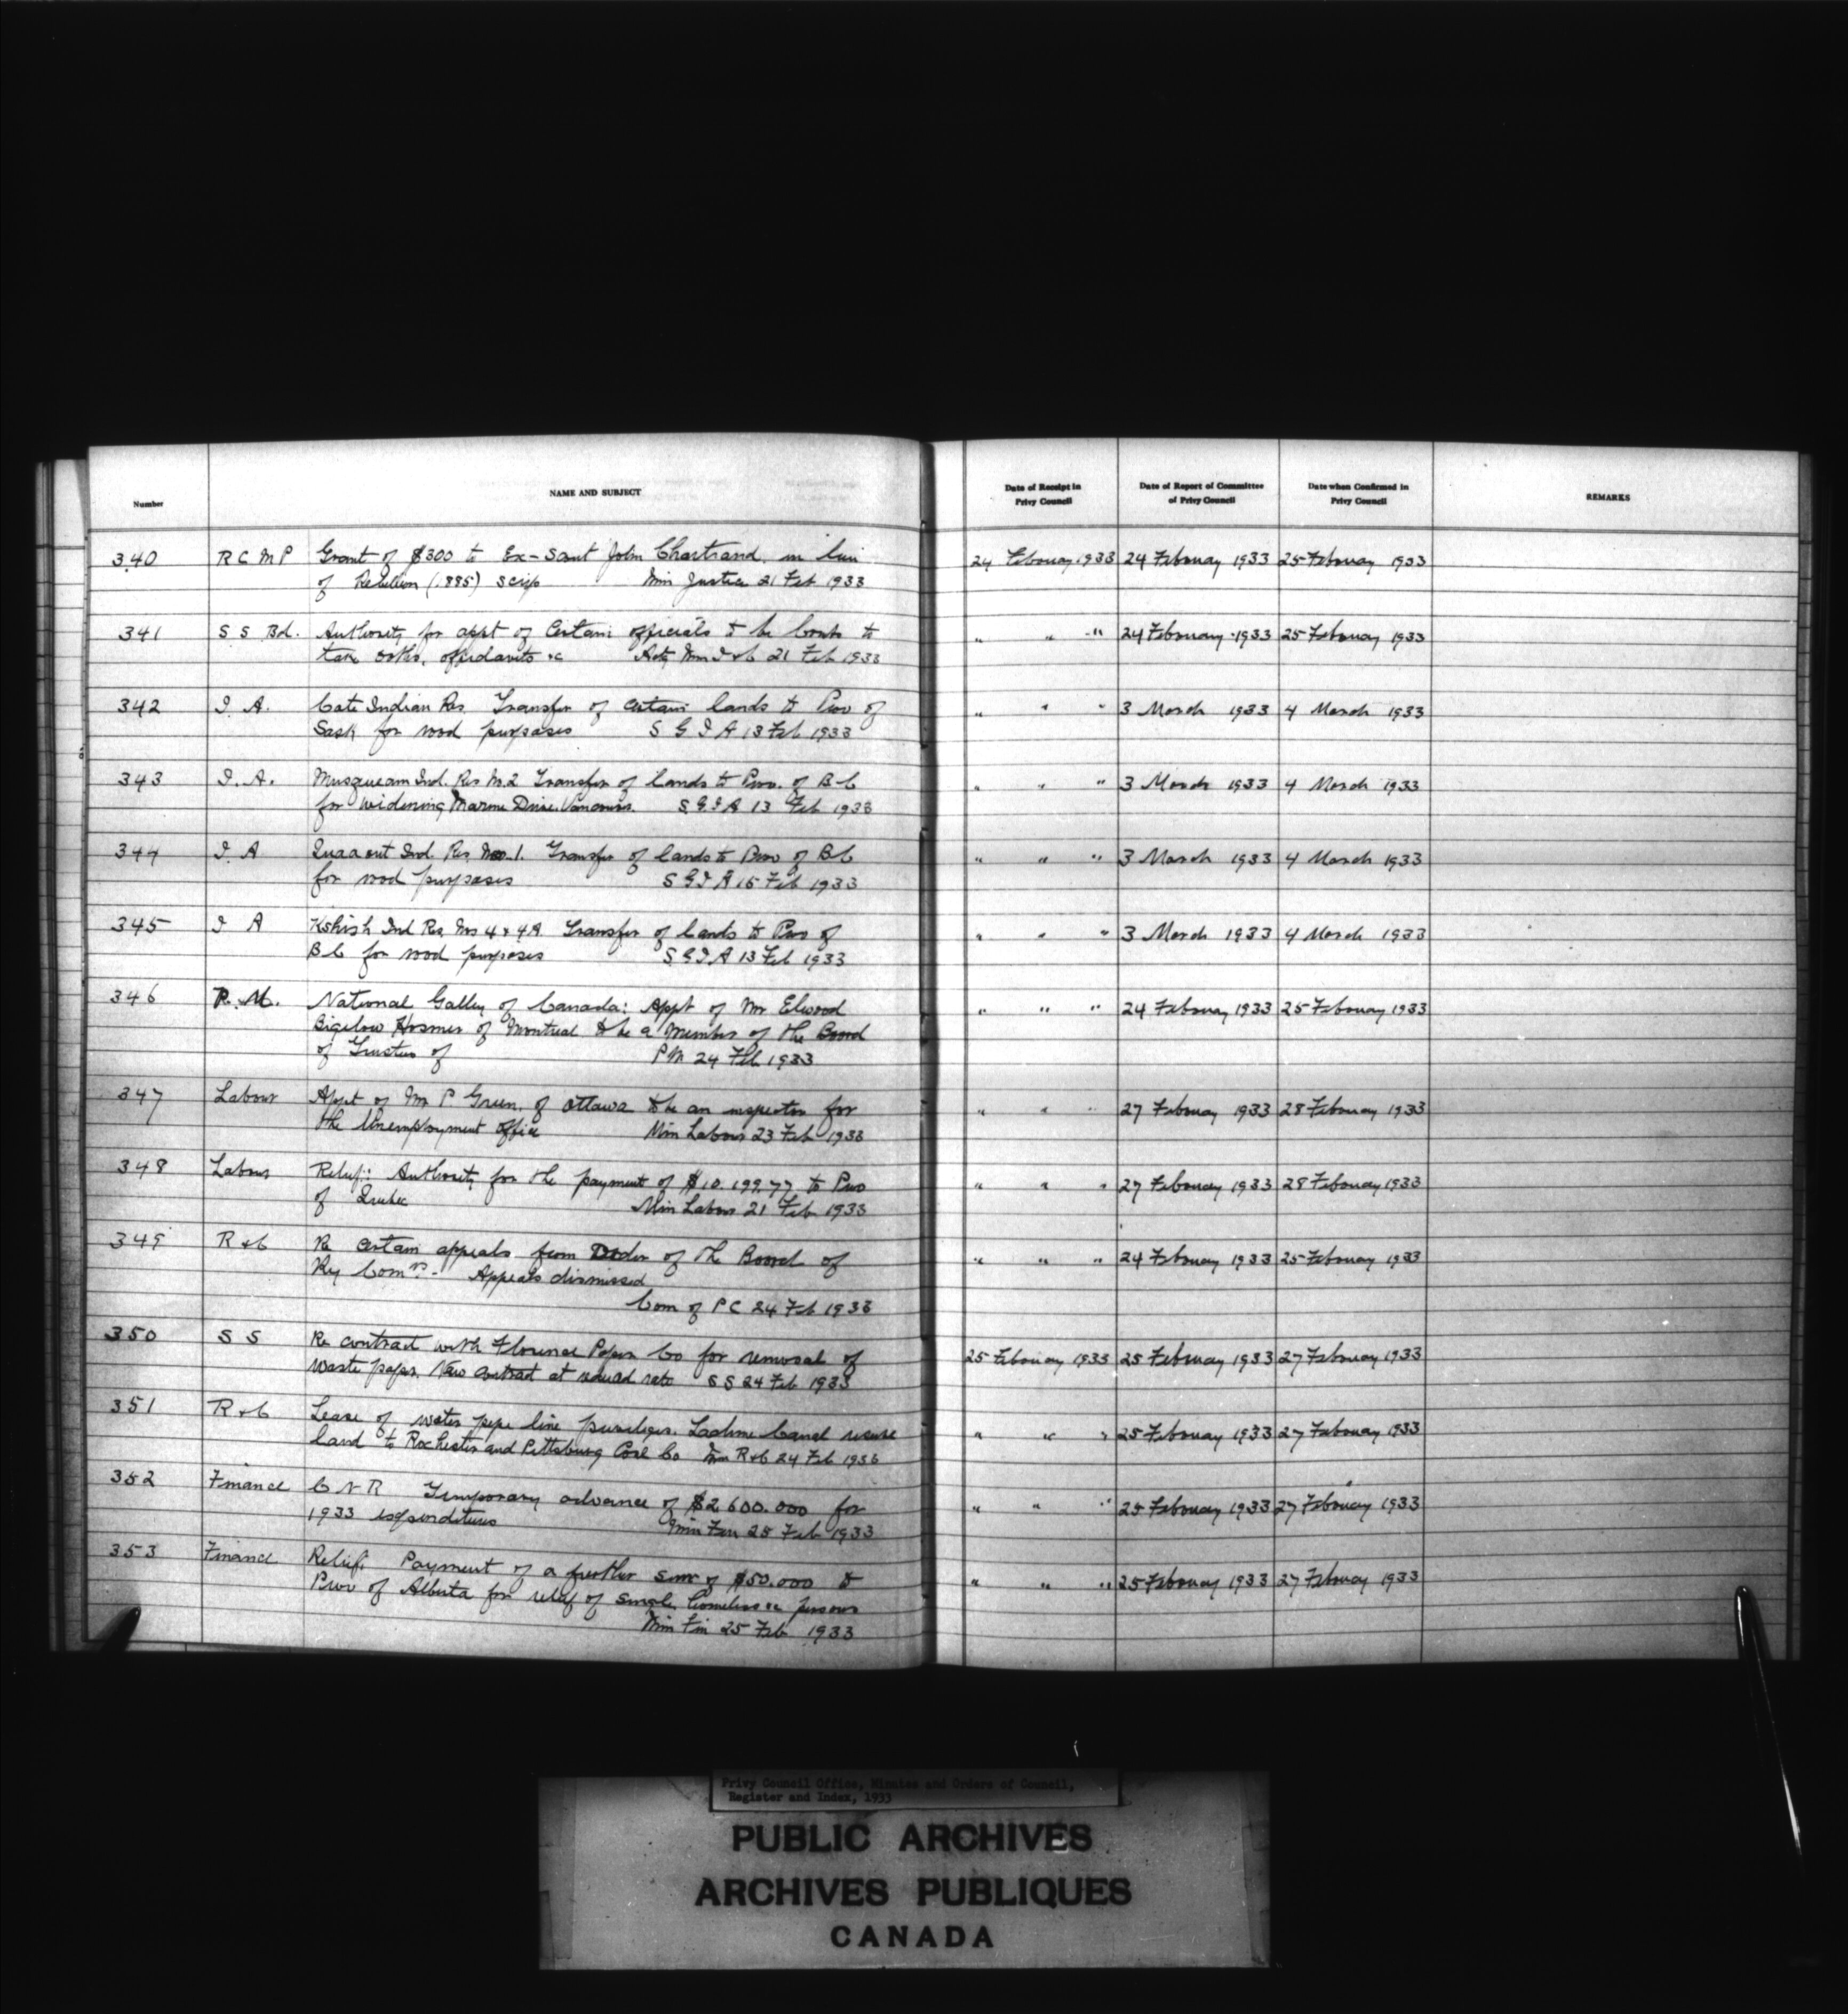 Number
NAME AND SUBJECT
Date of Receipt in
Privy Council
Date of Report of Committee
of Privy Council
Date when Confirmed in
Privy Council
REMARKS
340 R C M P Grant of $300 to Ex-Scout John Chartrand. in lieu 24 February 1933 24 February 1933 25 February 1933
of Rebellion (1885) Scrip Min Justice 21 Feb 1933
341 S S Bd. Authority for appt of Certain officials to be to " " " 24 February 1933 25 February 1933
take oaths, affidavits &c Actg Min T & C 21 Feb 1933
342 I. A. Cote Indian Res. Transfer of certain lands to Prov of " " " 3 March 1933 4 March 1933
Sask for road purposes S G I A 13 Feb 1933
343 I. A. Musqueam Ind. Res No. 2 Transfer of lands to Prov. of B C " " " 3 March 1933 4 March 1933
for widening Marine Drive, Vancouver. S G I A 13 Feb 1933
344 I. A Quaaout Ind. Res. No. 1. Transfer of lands to Prov of B C " " " 3 March 1933 4 March 1933
for road purposes S G I A 15 Feb 1933
345 I A Kshish Ind Res Nos 4 & 4A Transfer of lands to Prov of " " " 3 March 1933 4 March 1933
B C for road purposes S G I A 13 Feb 1933
346 P. M. National Gallery of Canada: Appt of Mr Elwood " " " 24 February 1933 25 February 1933
Bigelow Hosmer of Montreal to be a Member of the Board
of Trustees of P M 24 Feb 1933
347 Labour Appt of Mr P. Green, of Ottawa to be an inspector for " " " 27 February 1933 28 February 1933
the Unemployment office Min Labour 23 Feb 1933
348 Labour Relief: Authority for the payment of $10.199.77 to Prov " " " 27 February 1933 28 February 1933
of Quebec Min Labour 21 Feb 1933
349 R & C Re certain appeals from Order of the Board of " " " 24 February 1933 25 February 1933
Ry Comrs. - Appeals dismissed
Com of P C 24 Feb 1933
350 S S Re contract with Florence Paper Co for removal of 25 February 1933 25 February 1933 27 February 1933
waste paper. New contract at reduced rate S S 24 Feb 1933
351 R & C Lease of water pipe line privileges. Lachine Canal reserve " " " 25 February 1933 27 February 1933
land to Rochester and Pittsburg Coal Co Min R & C 24 Feb 1933
352 Finance C N R Temporary advance of $2 600.000 for " " " 25 February 1933 27 February 1933
1933 expenditures Min Fin 25 Feb 1933
353 Finance Relief: Payment of a further sum of $50.000 to " " " 25 February 1933 27 February 1933
Prov of Alberta for relief of single homeless &c persons
Min Fin 25 Feb 1933
Privy Council Office, Minutes and Orders of Council,
Register and Index, 1933
PUBLIC ARCHIVES
ARCHIVES PUBLIQUES
CANADA